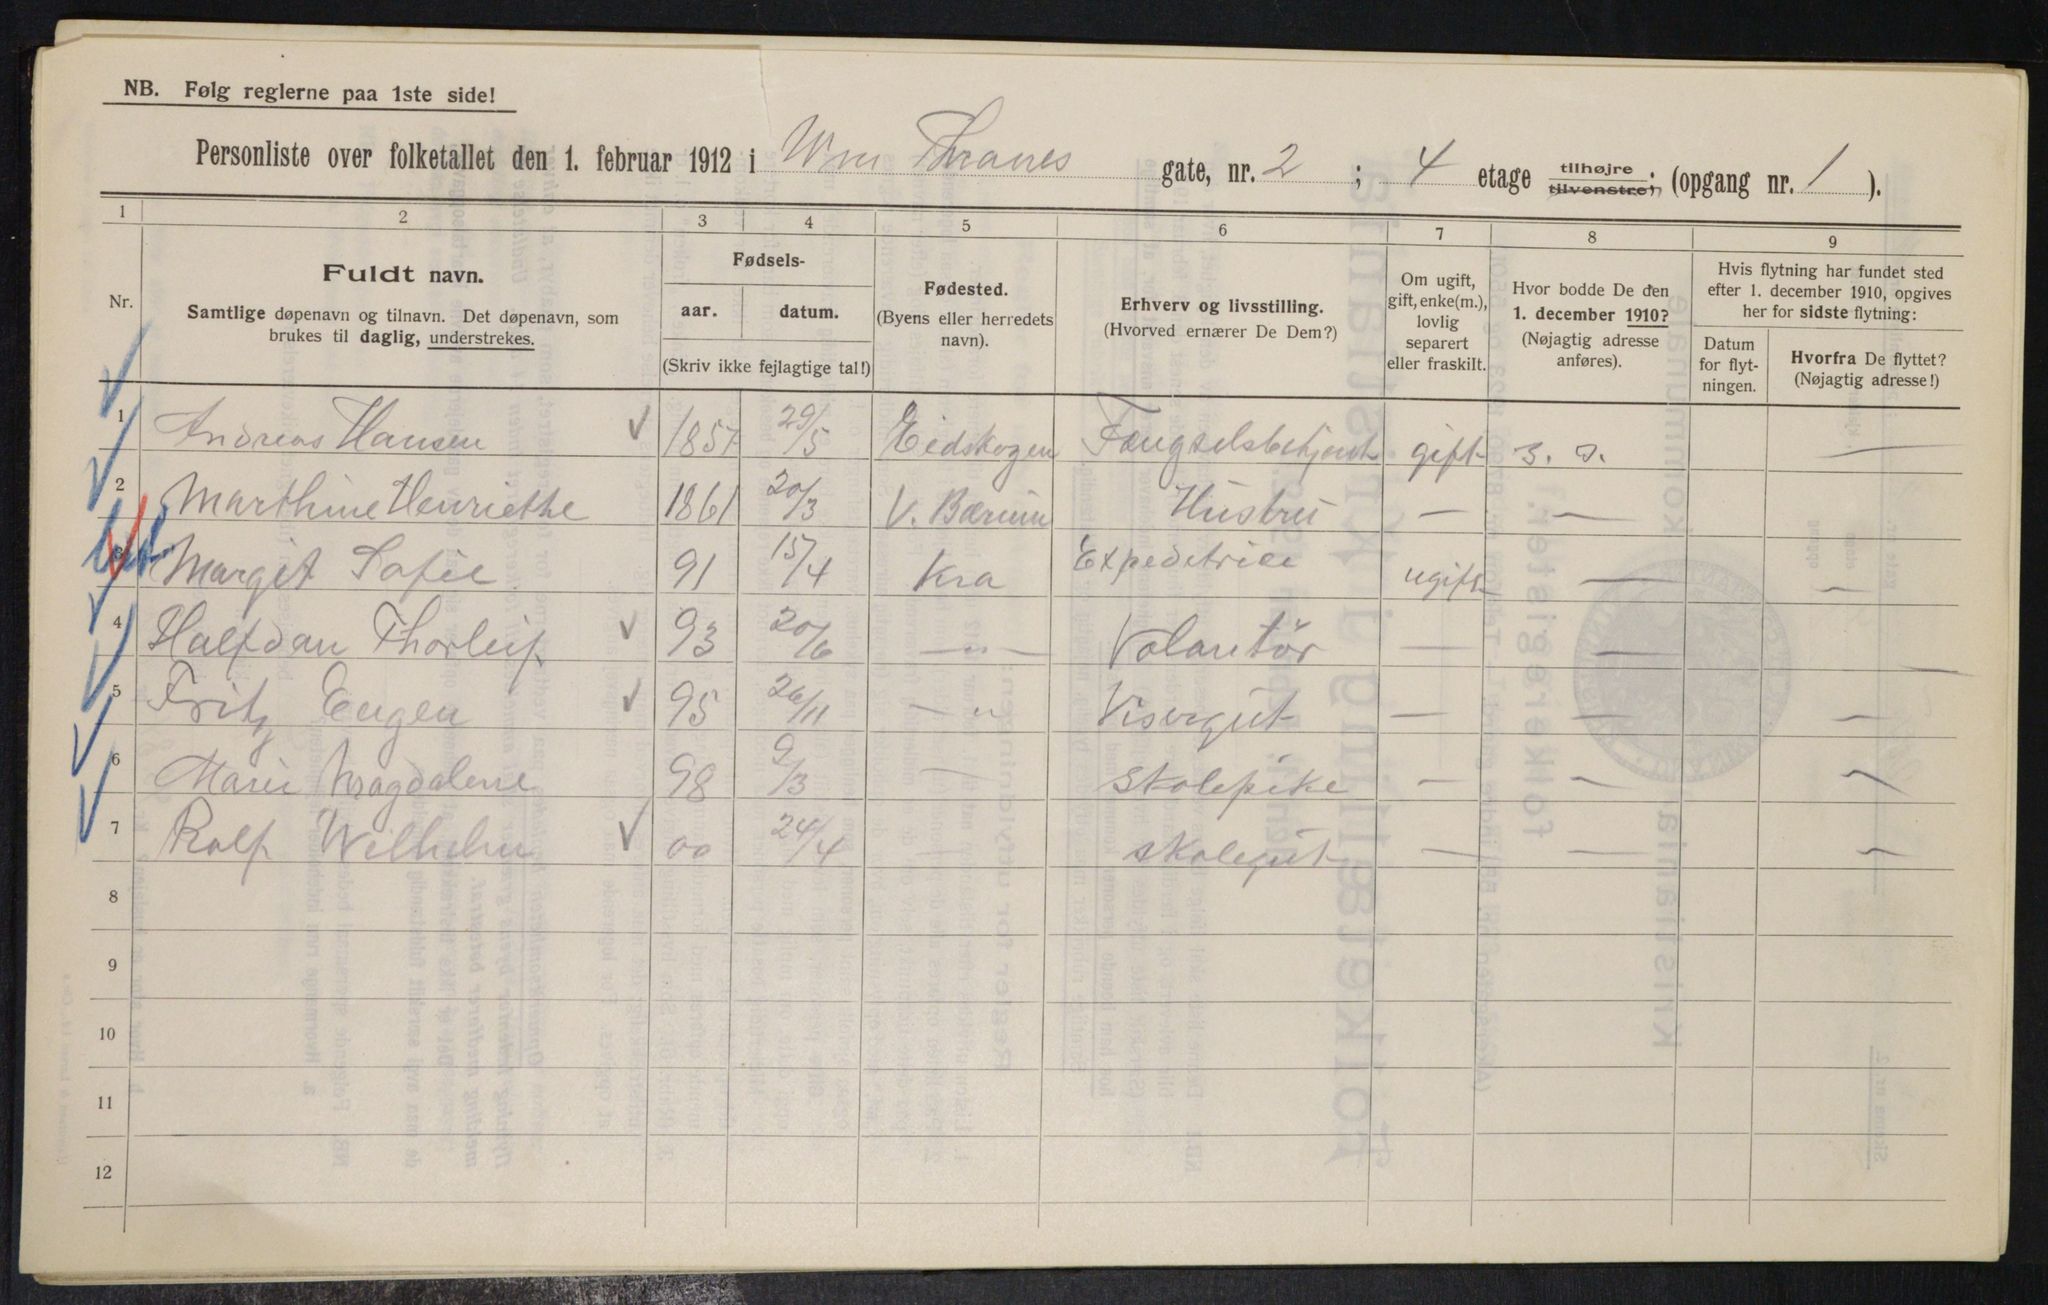 NB. Følg reglerne paa 1ste side!
Personliste over folketallet den 1. februar 1912 i Wm Thranes gate, nr. 2 ; 4 etage tilhøjre tilvenstre; (opgang nr. 1 ).
1 2 3 4 5 6 7 8 9
Nr.
Fuldt navn.
Samtlige døpenavn og tilnavn. Det døpenavn, som
brukes til daglig, understrekes.
Fødsels-
aar. datum.
(Skriv ikke fejlagtige tal!)
Fødested.
(Byens eller herredets
navn).
Erhverv og livsstilling.
(Hvorved ernærer De Dem?)
Om ugift,
gift, enke(m.),
lovlig
separert
eller fraskilt.
Hvor bodde De den
1. december 1910?
(Nøjagtig adresse
anføres).
Hvis flytning har fundet sted
efter 1. december 1910, opgives
her for sidste flytning:
Datum
for flyt-
ningen.
Hvorfra De flyttet?
(Nøjagtig adresse!)
1 Andreas Hansen 1857 29/5 Eidskogen Fængselsbetjent gift s. s. —
2 Marthine Henriethe 1861 20/3 V. Bærum Hustru — —
3 Margit Sofie 91 15/4 Kra Expeditrice ugift — —
4 Halfdan Thorleif 93 20/6 — " — Volantør — — —
5 Fritz Eugen 95 26/11 — " Visergut — — —
6 Marie Magdalene 98 9/3 — Skolepike — — —
7 Rolf Wilhelm 00 24/4 skolegut — — —
8
9
10
11
12